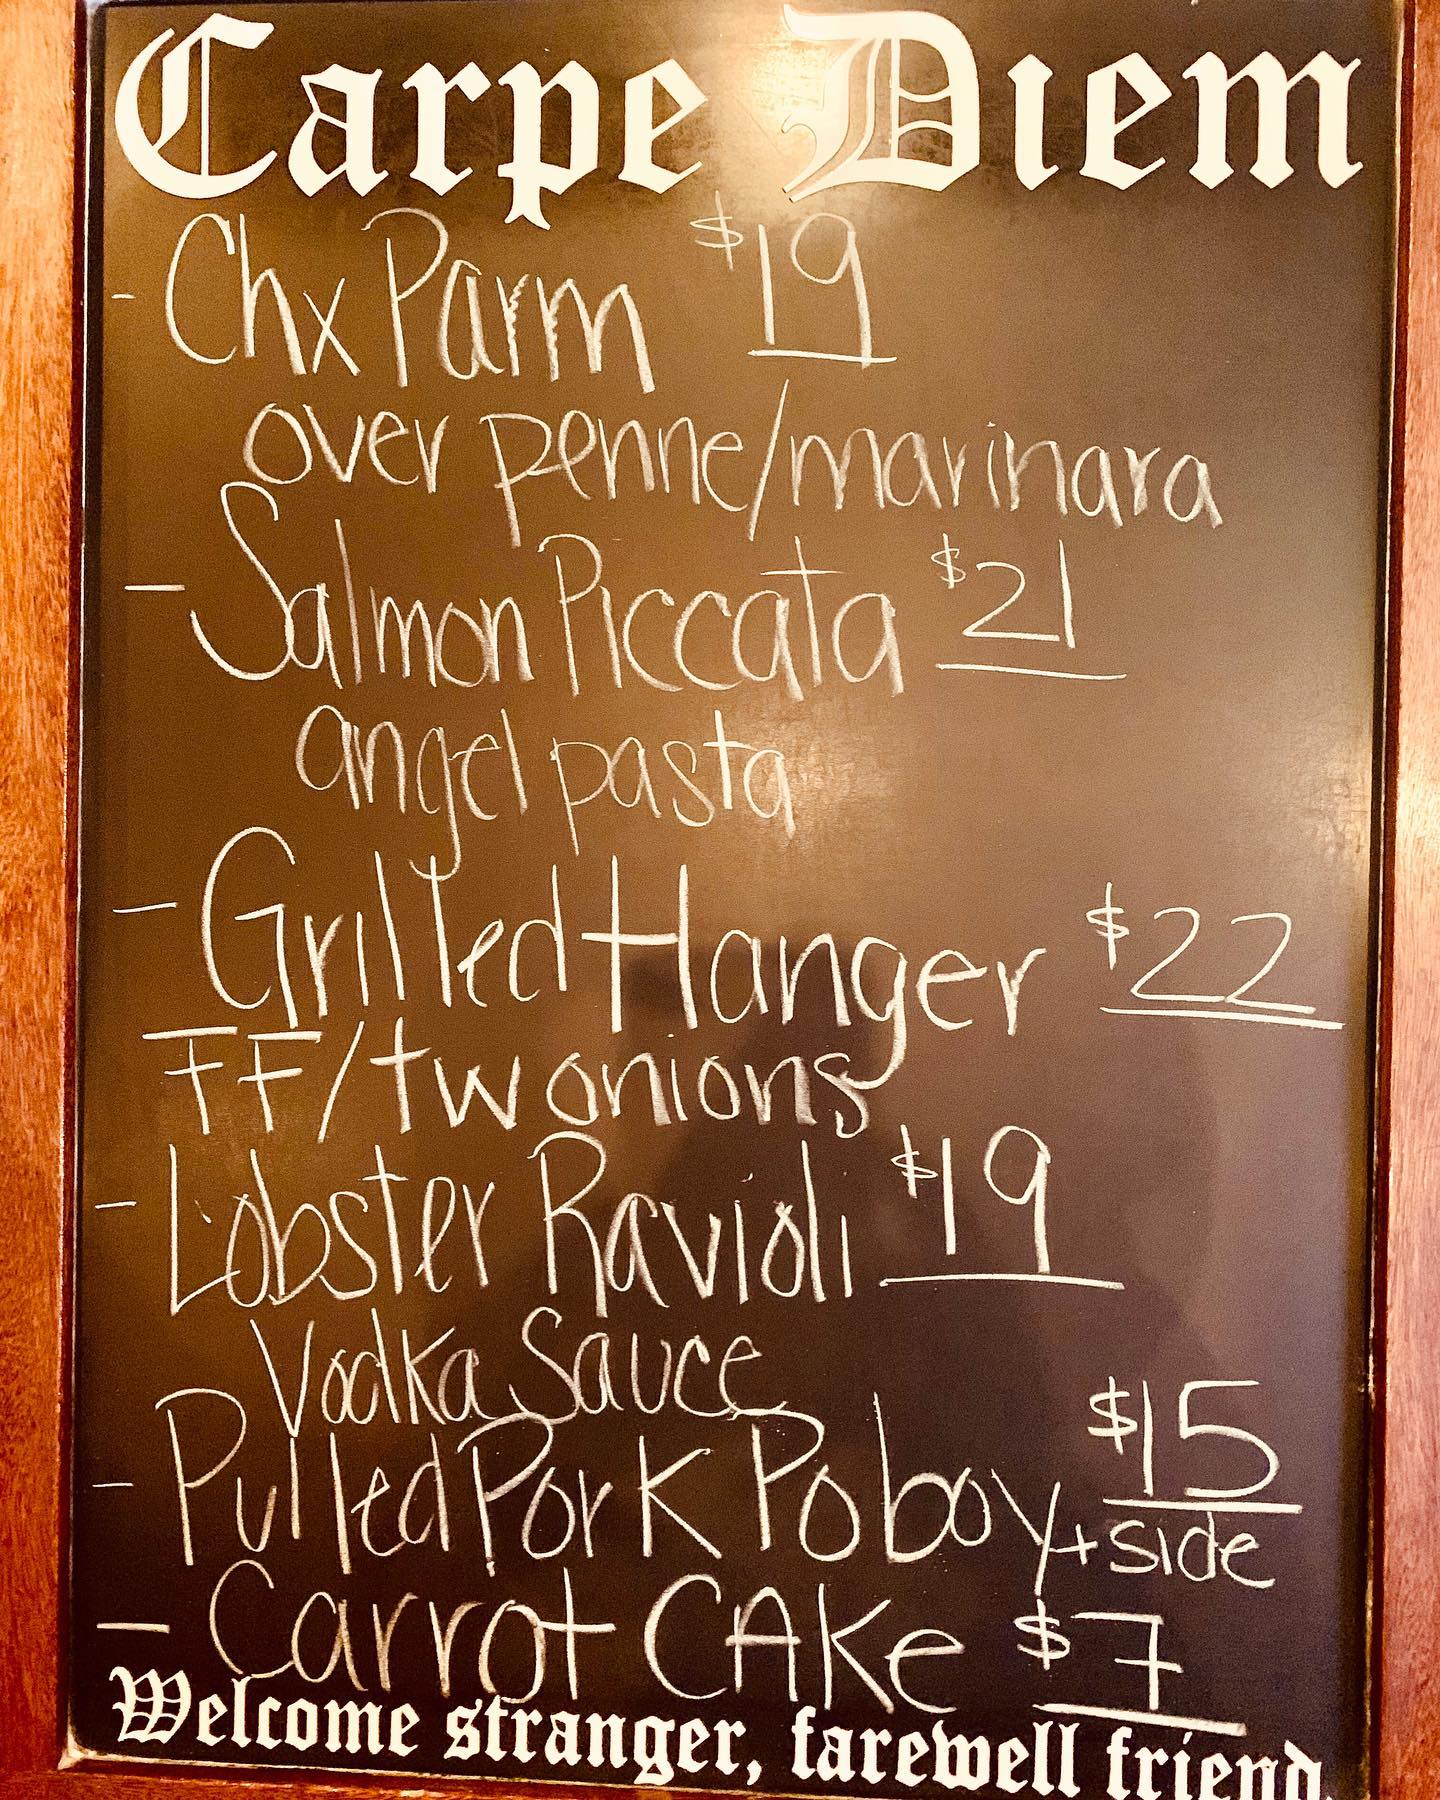 Carpe Diem
- Chx Parm $19
over penne/marinara
- Salmon Piccata $21
angel pasta
- Grilled Hanger $22
FF/tw onions
- Lobster Ravioli $19
Vodka Sauce
- Pulled Pork Poboy $15
+ side
- Carrot CAKe $7
Welcome stranger, farewell friend.